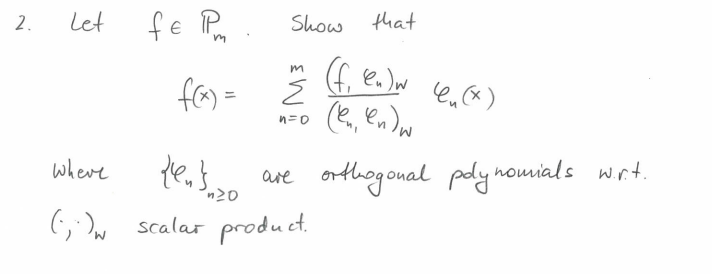 2. Let f ∈ ℙ_m . Show that
f(x) = \sum_{n=0}^{m} \frac{(f, φ_n)_w}{(φ_n, φ_n)_w} φ_n(x)
where {φ_n}_{n≥0} are orthogonal polynomials w.r.t.
(·,·)_w scalar product.